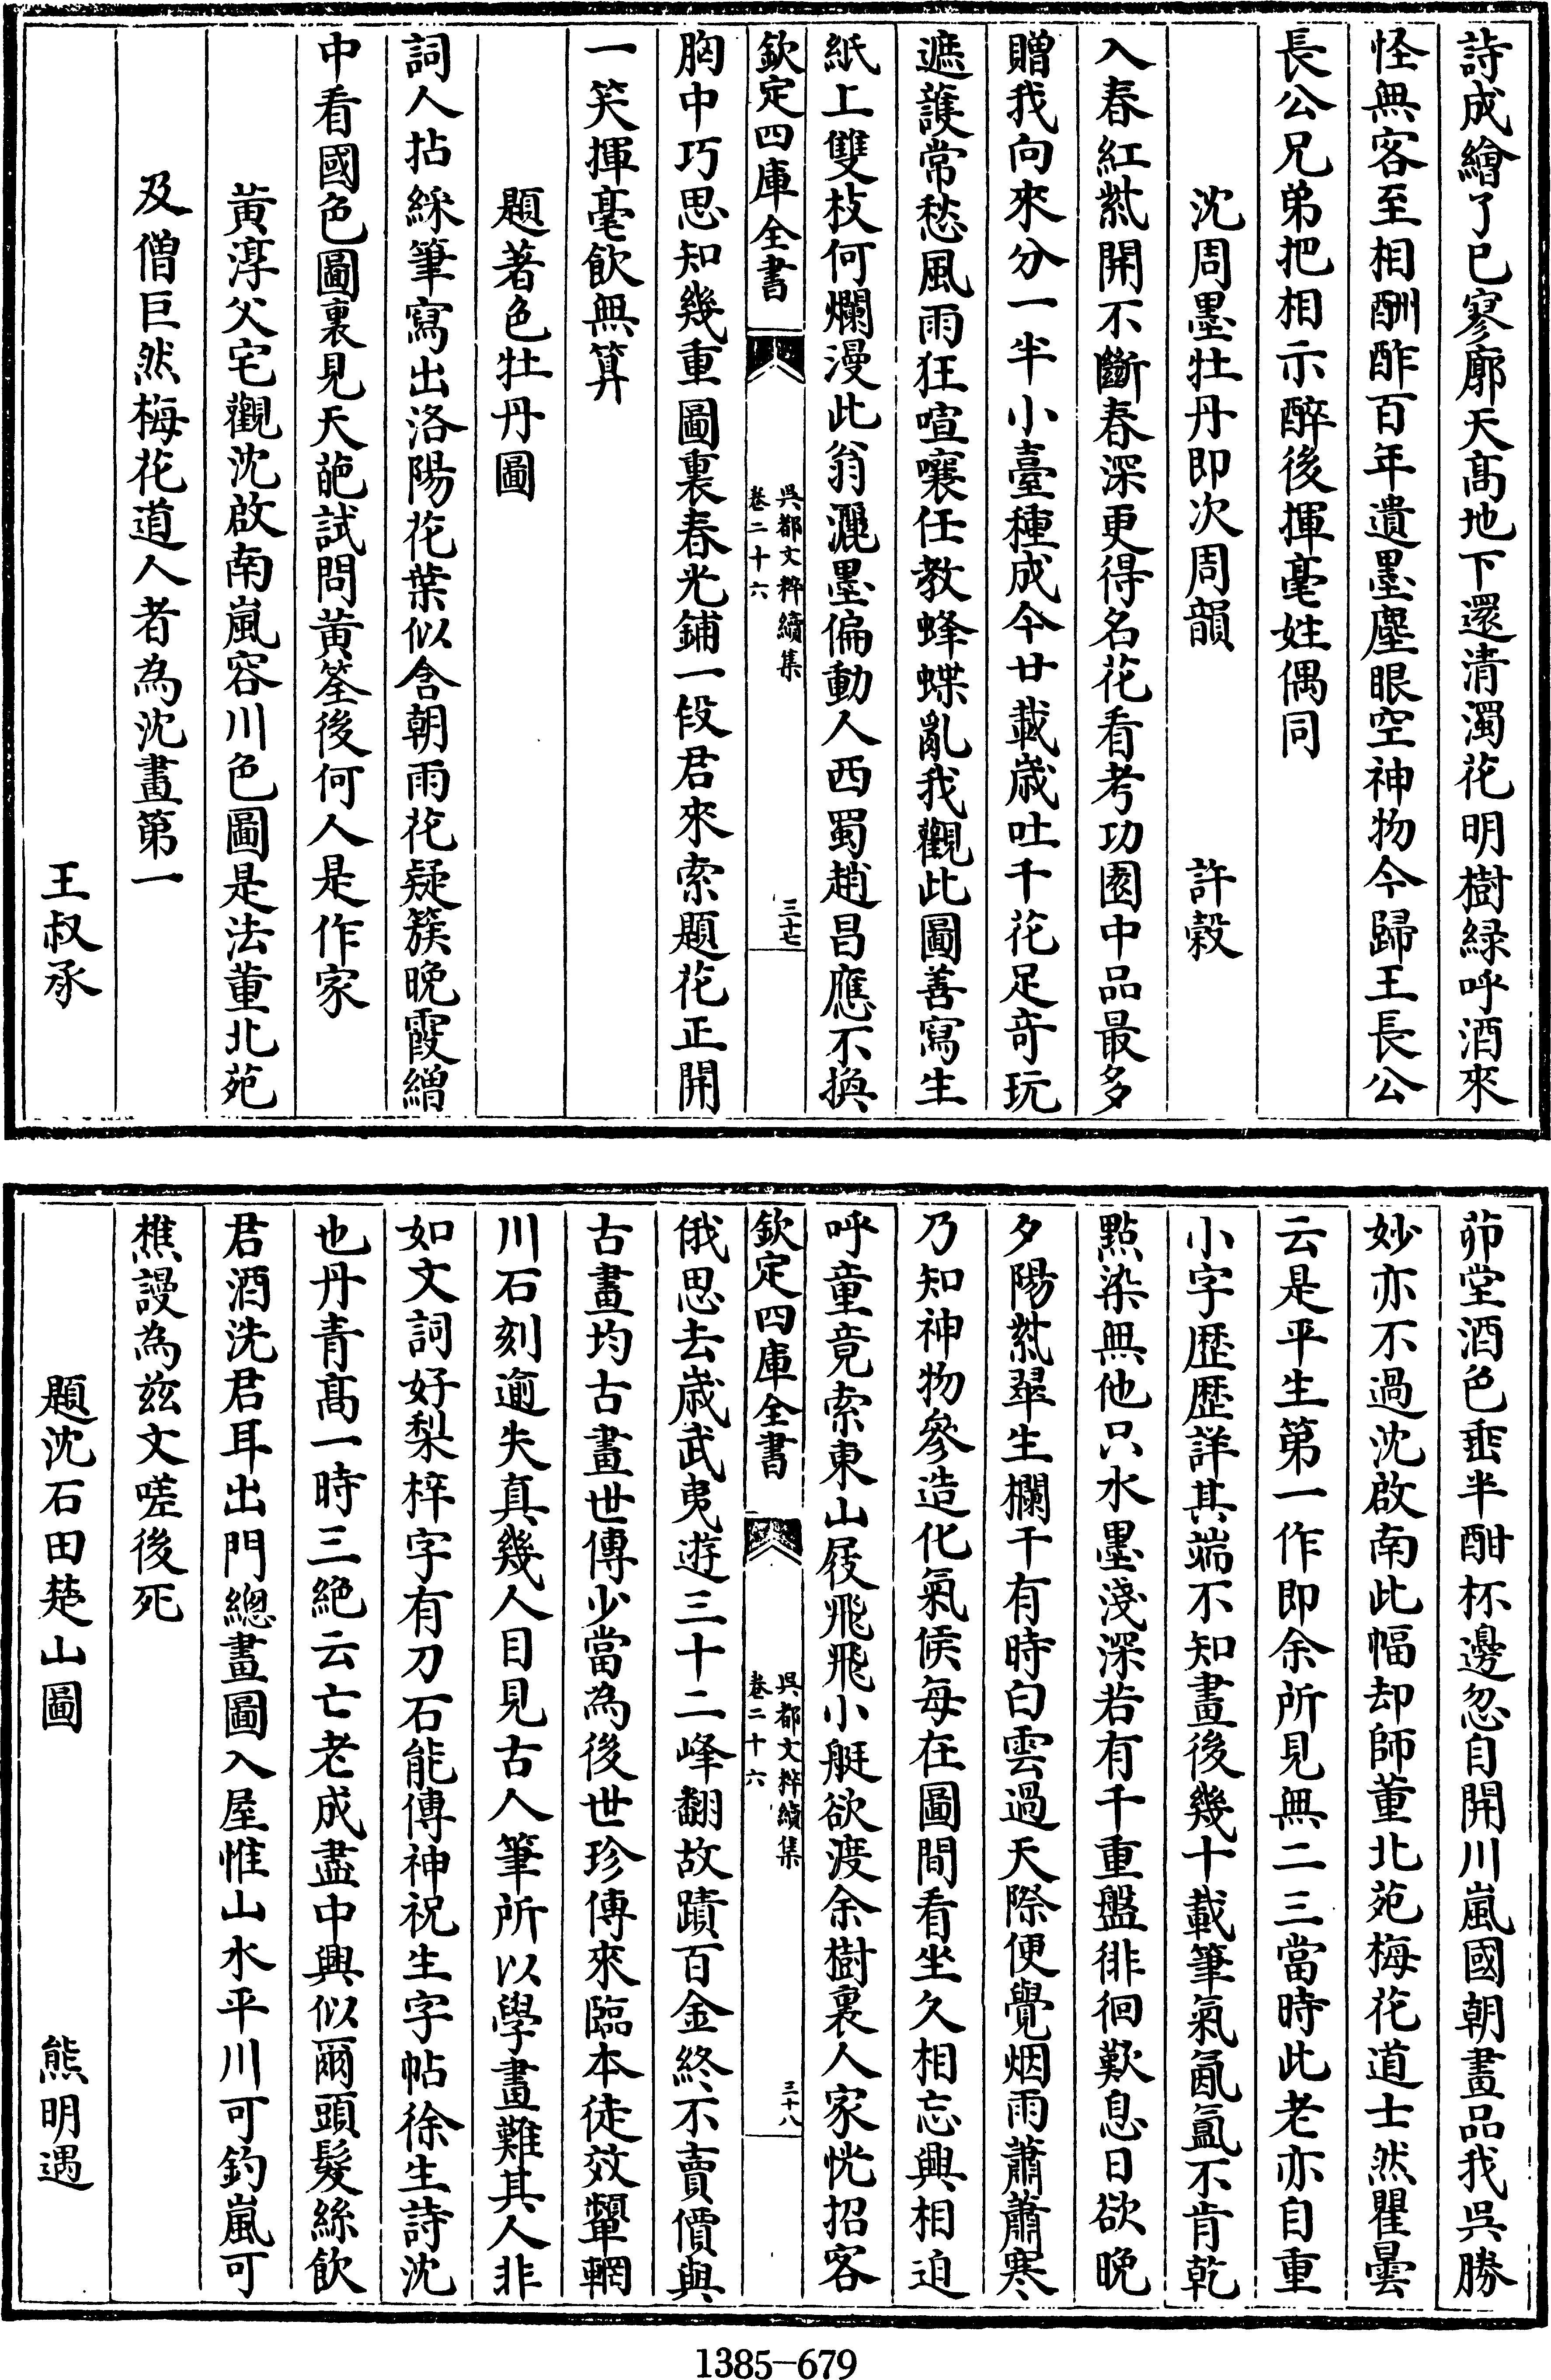 詩成繪了已寥廓天髙地下還清濁花明樹緑呼酒來
怪無客至相酬酢百年遺墨塵眼空神物今歸王長公
長公兄弟把相示醉後揮毫姓偶同
沈周墨牡丹即次周韻　許穀
入春紅紫開不斷春深更得名花看考功園中品最多
贈我向來分一半小臺種成今廿載歲吐千花足竒玩
遮護常愁風雨狂喧嚷任教蜂蝶亂我觀此圖善寫生
紙上雙枝何爛漫此翁灑墨偏動人西蜀趙昌應不換
欽定四庫全書　吳都文粹續集卷二十六　三十七
胸中巧思知幾重圖裏春光鋪一段君來索題花正開
一笑揮毫飲無算
題著色牡丹圖
詞人拈綵筆寫出洛陽花葉似含朝雨花疑簇晚霞繒
中看國色圖裏見天葩試問黄筌後何人是作家
黄淳父宅觀沈啟南嵐容川色圖是法董北苑
及僧巨然梅花道人者為沈畫第一
王叔承
茆堂酒色垂半酣杯邊忽自開川嵐國朝畫品我吳勝
妙亦不過沈啟南此幅却師董北苑梅花道士然瞿曇
云是平生第一作即余所見無二三當時此老亦自重
小字歷歷詳其端不知畫後幾十載筆氣氤氳不肯乾
點染無他只水墨淺深若有千重盤徘徊歎息日欲晚
夕陽紫翠生欄干有時白雲過天際便覺烟雨蕭蕭寒
乃知神物參造化氣候每在圖間看坐久相忘興相迫
呼童竟索東山屐飛飛小艇欲渡余樹裏人家恍招客
欽定四庫全書　吳都文粹續集卷二十六　三十八
俄思去歲武夷遊三十二峰翻故蹟百金終不賣價與
古畫均古畫世傳少當為後世珍傳來臨本徒效顰輞
川石刻逾失真幾人目見古人筆所以學畫難其人非
如文詞好梨梓字有刀石能傳神祝生字帖徐生詩沈
也丹青髙一時三絶云亡老成盡中興似爾頭髮絲飲
君酒洗君耳出門總畫圖入屋惟山水平川可釣嵐可
樵謾為茲文嗟後死
題沈石田楚山圖　熊明遇
1385-679